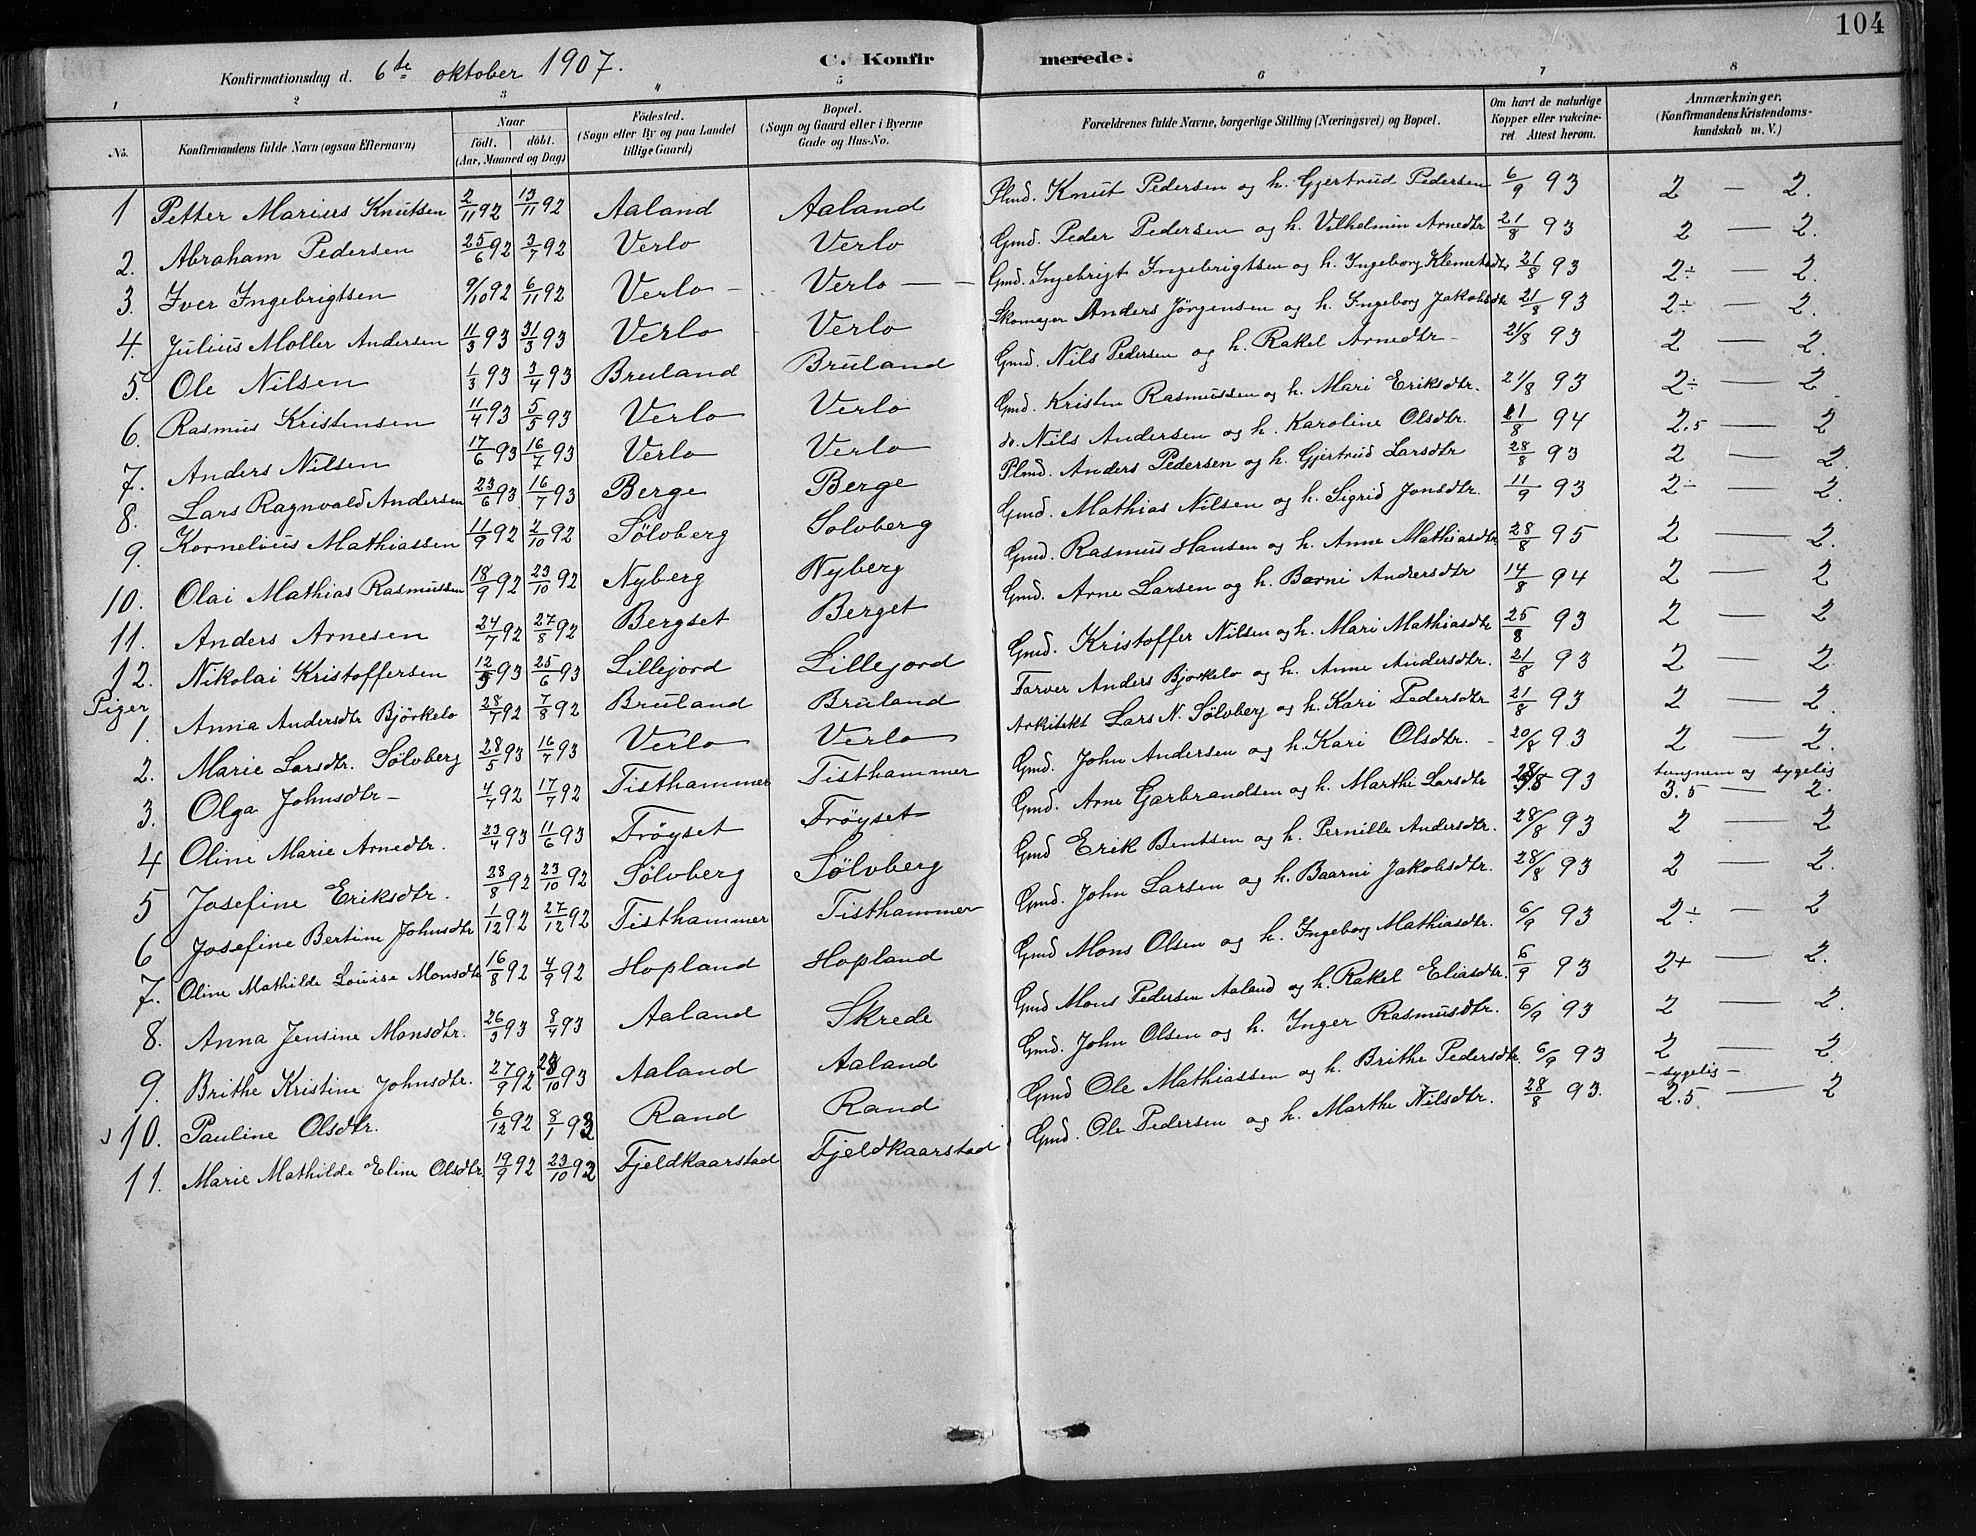 104
Konfirmationsdag d. 6te oktober 1907. C. Konfirmerede.
1 2 3 4 5 6 7 8
No. Konfirmandens fulde Navn (ogsaa Efternavn) Naar født. døbt. (Aar, Maaned og Dag) Födested. (Sogn eller By og paa Landet tillige Gaard) Bopæl. (Sogn og Gaard eller i Byerne Gade og Hus-No. Forældrenes fulde Navne, borgerlige Stilling (Næringsvei) og Bopæl. Om havt de naturlige Kopper eller vakcineret Attest herom. Anmærkninger. (Konfirmandens Kristendomskundskab m. V.)
1 Petter Marius Knutsen 2/11 92 13/11 92 Aaland Aaland Plmd. Knut Pedersen og h. Gjertrud Pedersen 6/9 93 2 — 2.
2. Abraham Pedersen 25/6 92 3/7 92 Verlo Verlo Gmd. Peder Pedersen og h. Vilhelmin Arnedtr 21/8 93 2 — 2.
3. Iver Ingebrigtsen 9/10 92 6/11 92 Verlo – Verlo — Gmd. Ingebrigt Ingebrigtsen og h. Ingeborg Klemetsdtr 21/8 93 2÷ — 2.
4. Julius Moller Andersen 11/3 93 31/3 93 Verlo Verlo Skomager Anders Jörgensen og h. Ingeborg Jakobsdtr 21/8 93 2÷ — 2.
5. Ole Nilsen 1/3 93 3/4 93 Bruland Bruland Gmd. Nils Pedersen og h. Rakel Arnedtr – 21/8 93 2 — 2.
6. Rasmus Kristensen 11/4 93 5/5 93 Verlo Verlo Gmd. Kristen Rasmussen og h. Mari Eriksdtr. 21/8 93 2÷ — 2
7. Anders Nilsen 17/6 93 16/7 93 Verlo Verlo do. Nils Andersen og h. Karoline Olsdtr. 21/8 94 2.5 — 2
8. Lars Ragnvald Andersen 23/6 93 16/7 93 Berge Berge Plmd. Anders Pedersen og h. Gjertrud Larsdtr 28/8 93 2 — 2.
9. Kornelius Mathiassen 11/9 92 2/10 92 Sölvberg Solvberg Gmd. Mathias Nilsen og h. Sigrid Jonsdtr. 11/9 93 2÷ — 2.
10. Olai Mathias Rasmussen 18/9 92 23/10 92 Nyberg Nyberg Gmd. Rasmus Hansen og h. Anne Mathiasdtr 28/8 95 2 — 2.
11. Anders Arnesen 24/7 92 27/8 92 Bergset Berget Gmd. Arne Larsen og h. Barni Andersdtr 14/8 94 2 — 2
12. Nikolai Kristoffersen 12/5 93 25/6 93 Lillejord Lillejord Gmd. Kristoffer Nilsen og h. Mari Mathiasdtr 25/8 93 2 — 2
Piger
1. Anna Andersdtr Björkelo 28/7 92 7/8 92 Bruland Bruland Farver Anders Bjorkelo og h. Anne Andersdtr. 21/8 93 2 — 2
2. Marie Larsdtr. Sölvberg 28/5 93 16/7 93 Verlo Verlo Arkitekt Lars N. Sölvberg og h. Kari Pedersdtr 21/8 93 2 — 2.
3. Olga Johnsdtr – 4/7 92 17/7 92 Tisthammer Tisthammer Gmd. John Andersen og h. Kari Olsdtr. – 20/8 93 2 — 2.
4 Oline Marie Arnedtr. 23/4 93 11/6 93 Tröyset Tröyset Gmd. Arne Garbrandsen og h. Marthe Larsdtr 28/8 93 tungnem og sygelig 3.5 — 2.
5 Josefine Eriksdtr. 28/8 92 23/10 92 Sölvberg Sölvberg Gmd Erik Bentsen og h. Pernille Andersdtr. 28/8 93 2 — 2
6 Josefine Bertine Johnsdtr 1/12 92 27/12 92 Tisthammer Tisthammer Gmd. John Larsen og h. Baarni Jakobsdtr. 28/8 93 2 — 2.
7. Oline Mathilde Louise Monsdtr 16/8 92 4/9 92 Hopland Hopland Gmd Mons Olsen og h. Ingeborg Mathiasdtr. 6/9 93 2÷ — 2
8. Anna Jensine Monsdtr. 26/3 93 8/4 93 Aaland Skrede Gmd Mons Pedersen Aaland og h. Rakel Eliasdtr. 6/9 93 2+ — 2.
9. Brithe Kristine Johnsdtr. 27/9 92 28/10 93 Aaland Aaland Gmd. John Olsen og h. Inger Rasmusdtr. 6/9 93 2 — 2.
10. Pauline Olsdtr. 6/12 92 8/1 93 Rand Rand Gmd Ole Mathiassen og h. Brithe Pedersdtr. 6/9 93 2 — 2.
11. Marie Mathilde Eline Olsdtr 19/9 92 23/10 92 Fjeldkaarstad Fjeldkaarstad Gmd. Ole Pedersen og h. Marthe Nilsdtr. 28/8 93. – sygelig – 2.5 — 2